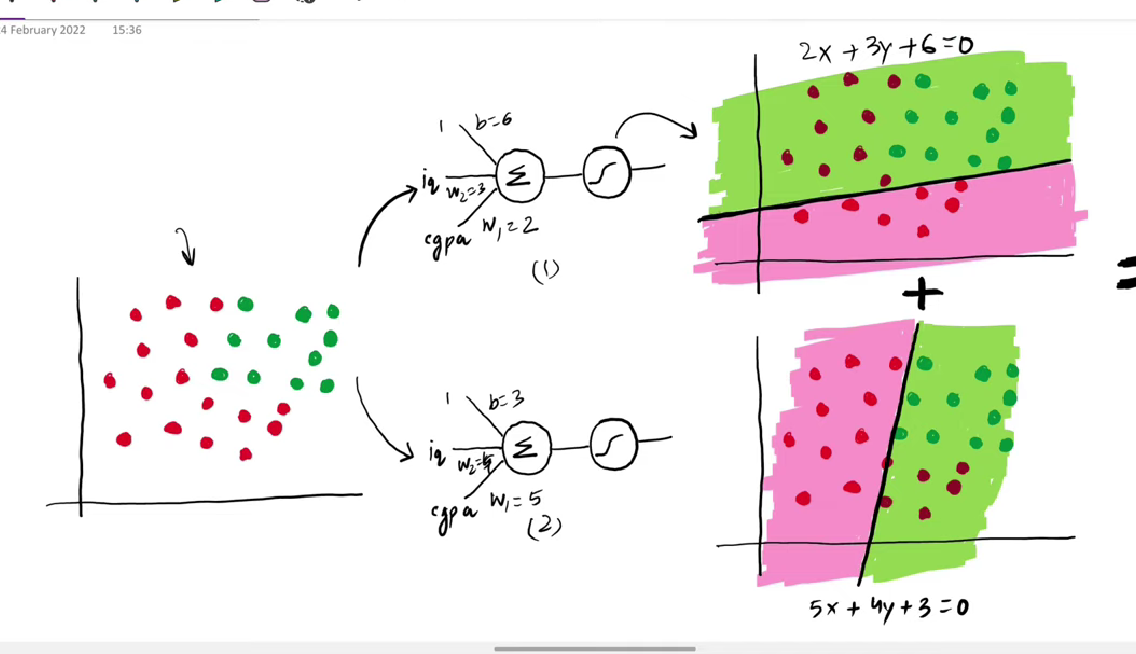 4 February 2022 15:36
2x + 3y + 6 = 0
1 b=6
iq w₂=3
Σ
cgpa w₁ = 2
(1)
+
=
1 b=3
iq w₂=4
Σ
cgpa w₁ = 5
(2)
5x + 4y + 3 = 0